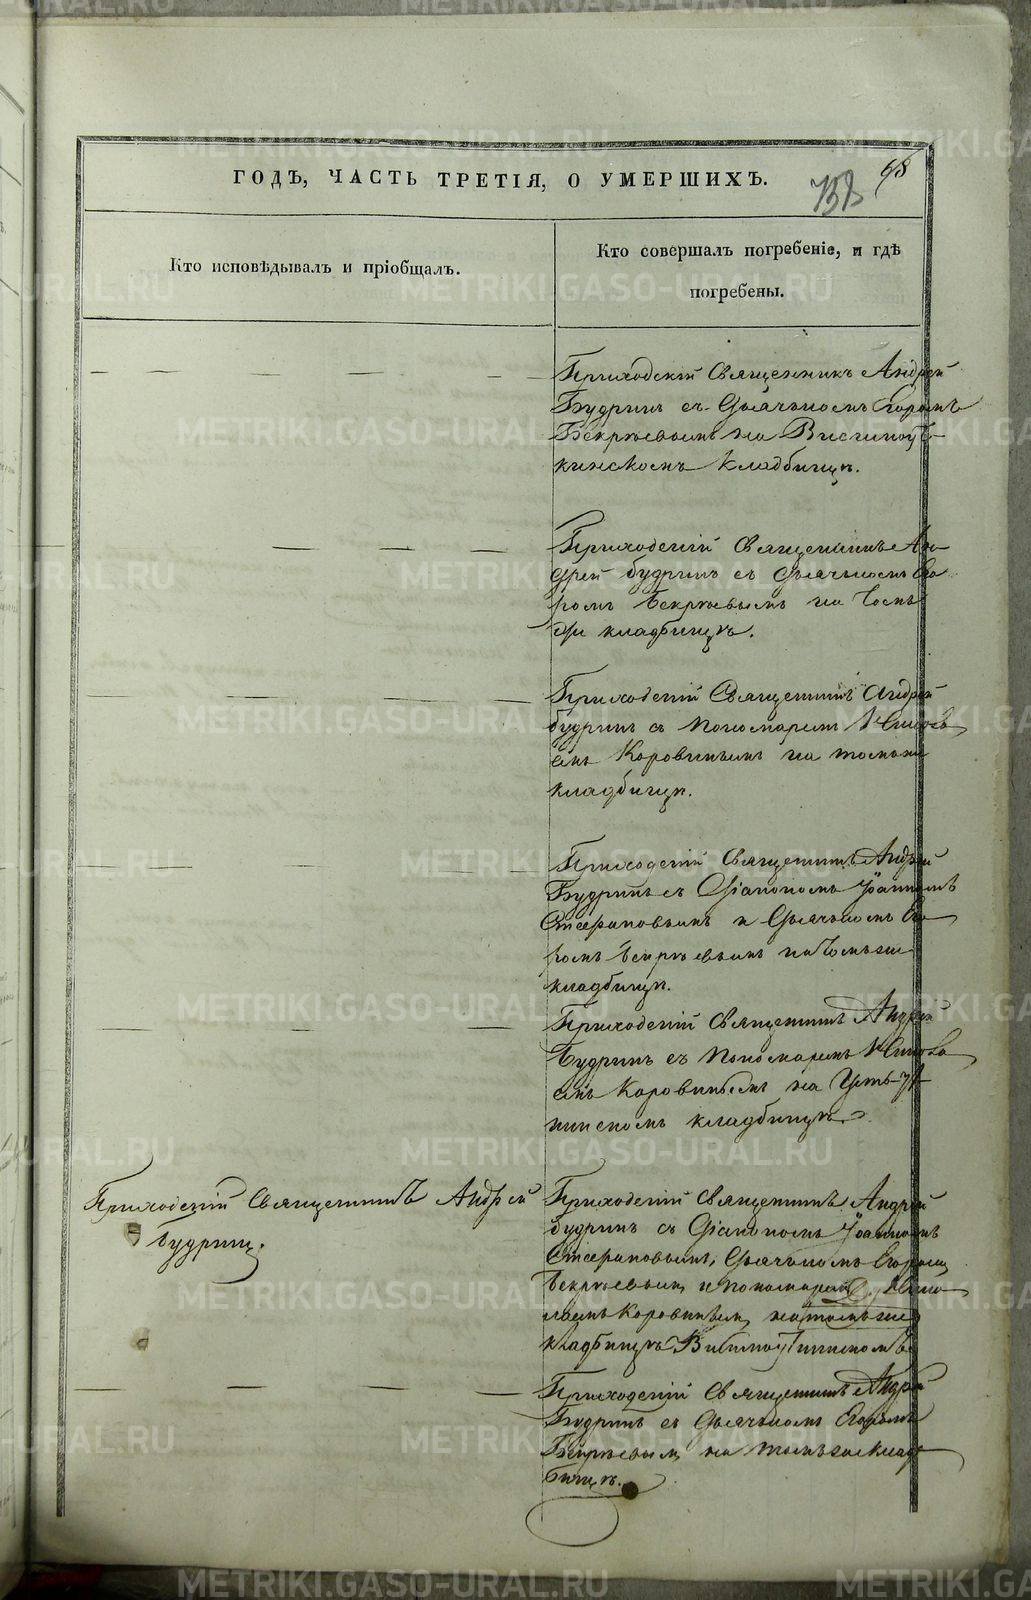 ГОДЪ, ЧАСТЬ ТРЕТІЯ, О УМЕРШИХЪ.
758
68
Кто исповѣдывалъ и пріобщалъ.
Кто совершалъ погребеніе, и гдѣ
погребены.
Приходскій Священникъ Андрей
Будринъ съ Дьячькомъ Егоромъ
на
кинскомъ кладбищѣ.
Приходскій Священникъ Ан-
дрей Будринъ съ Дьячькомъ Его
ромъ на томъ
же кладбищѣ.
Приходскій Священникъ Андрей
Будринъ съ Пономаремъ
Коровинымъ на томъ же
кладбищѣ.
Приходскій Священникъ Андрей
Будринъ съ Діакономъ Іоанномъ
Стефановымъ и Дьячькомъ Его
ромъ на томъ же
кладбищѣ.
Приходскій Священникъ Андрей
Будринъ съ Пономаремъ
Коровинымъ на Усть-
кладбищѣ
Приходскій Священникъ Андрей
Будринъ.
Приходскій Священникъ Андрей
Будринъ съ Діакономъ Іоанномъ
Стефановымъ, Дьячькомъ Егоромъ
и пономаремъ
Коровинымъ на томъ же
кладбищѣ
Приходскій Священникъ Андрей
Будринъ съ Дьячькомъ Егоромъ
на томъ же клад-
бищѣ.
METRIKI.GASO-URAL.RU